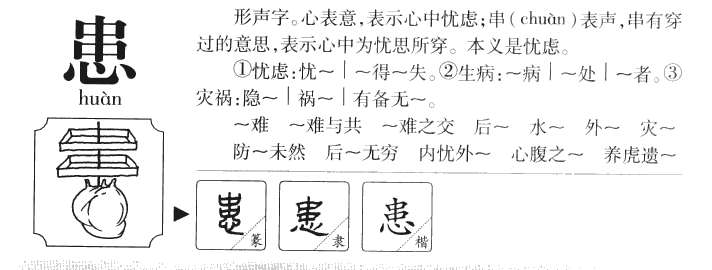 患
huàn
形声字。心表意,表示心中忧虑;串(chuàn)表声,串有穿
过的意思,表示心中为忧思所穿。本义是忧虑。
①忧虑:忧～｜～得～失。②生病:～病｜～处｜～者。③
灾祸:隐～｜祸～｜有备无～。
～难 ～难与共 ～难之交 后～ 水～ 外～ 灾～
防～未然 后～无穷 内忧外～ 心腹之～ 养虎遗～
患 篆 患 隶 患 楷